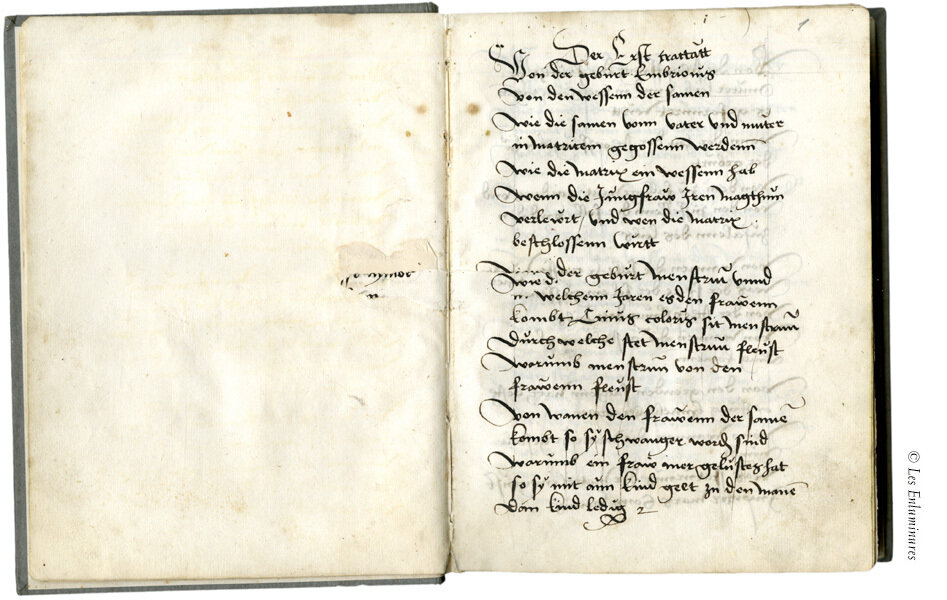 Der Erst trattatt
Von der geburt Embrionis
Von den wessenn der samen
Wie die samen vonn vater vnd muter
in matricem gegossenn werdenn
Wie die matrix ein wessenn hab
Wenn die Jungfraw Jren magthum
verlewrt / vnd wen die matrix
beschlossenn wirtt
Wie der geburt menstruu vnnd
welchenn Jaren es den frawenn
kombt Cuius coloris sit menstruu
Durch welche stet menstruu fleust
Warumb menstruu von den
frawenn fleust
Von wanen den frawenn der same
kombt so sy schwanger word sind
Warumb ein fraw mer gelustes hat
so sy mit aim kind geet zu den mane
dan kind ledig
1
© Les Enluminures